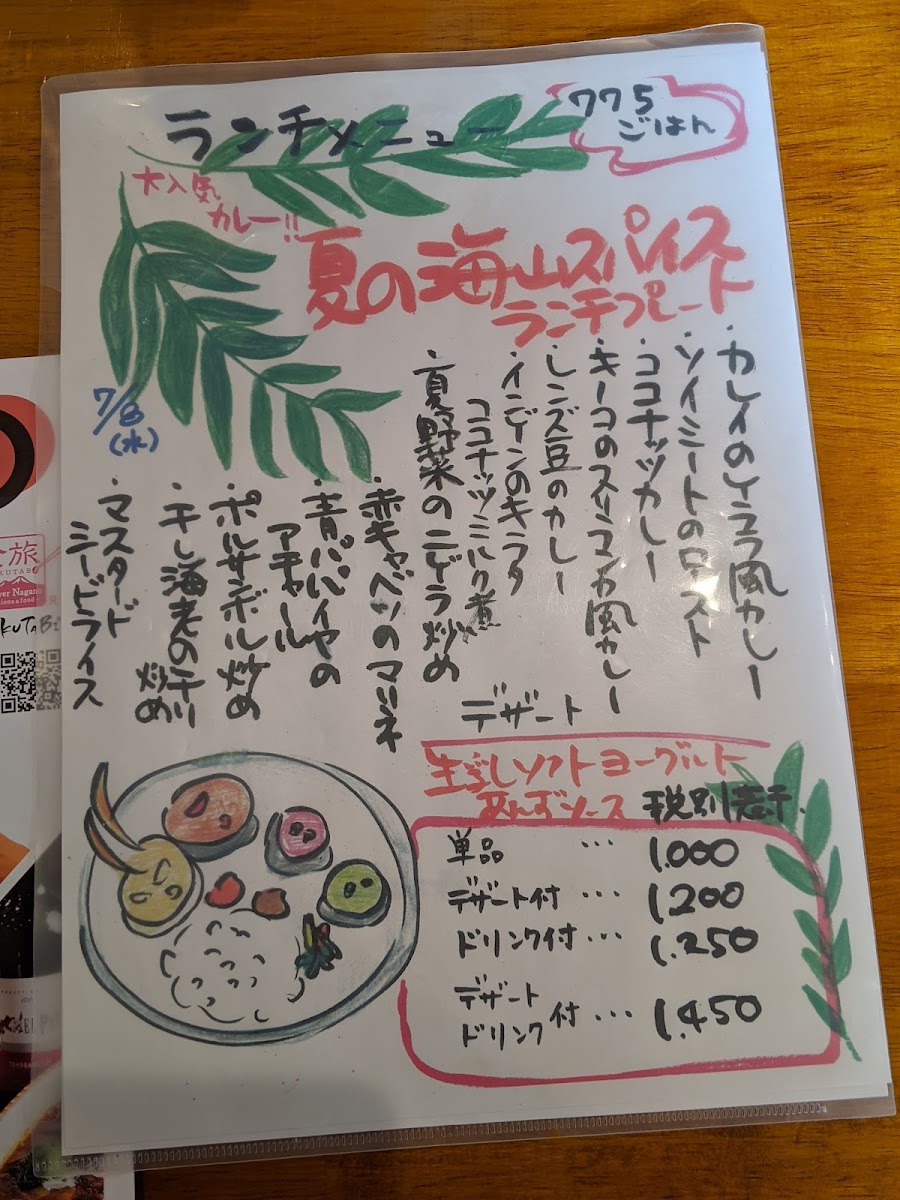 ランチメニュー
775
ごはん
大人気
カレー!!
夏の海山スパイス
ランチプレート
・カレイのケララ風カレー
・ソイミートのロースト
ココナッツカレー
・キノコのスリランカ風カレー
・レンズ豆のカレー
・インゲンのキラタ
ココナッツミルク煮
・夏野菜のニゲラ炒め
・赤キャベツのマリネ
・青パパイヤの
アチャール
・ポルサンボル炒め
・干し海老のチリ
炒め
・マスタード
シードライス
7/8
(水)
デザート
ソフトヨーグルト
あんずソース
税別表示
単品 … 1.000
デザート付 … 1.200
ドリンク付 … 1.250
デザート
ドリンク 付 … 1.450
旅